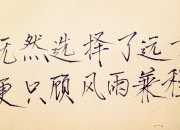 既然选择了远
便只顾风雨兼程